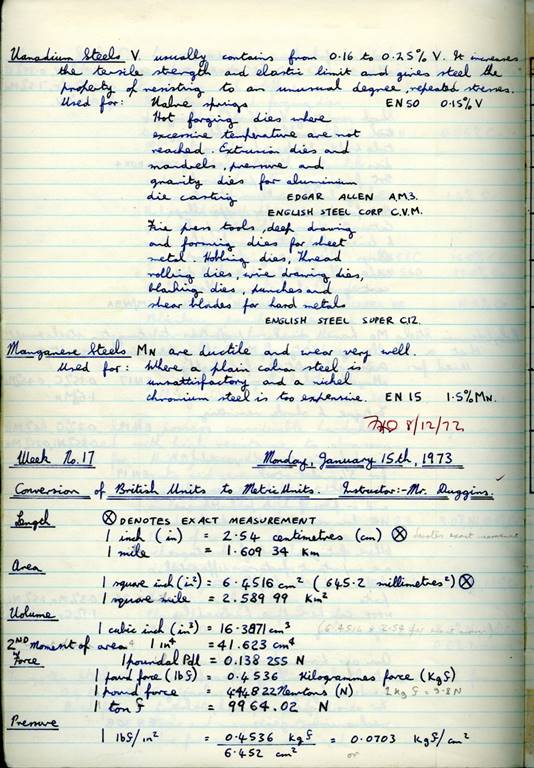 Vanadium Steels V. usually contains from 0.16 to 0.25% V. It increases
the tensile strength and elastic limit and gives steel the
property of resisting to an unusual degree, repeated stresses.
Used for: Valve springs EN50 0.15% V
Hot forging dies where
excessive temperature are not
reached. Extrusion dies and
mandrels, pressure and
gravity dies for aluminium
die casting EDGAR ALLEN A.M.3.
ENGLISH STEEL CORP C.V.M.
Fine press tools, deep drawing
and forming dies for sheet
metal. Hobbing dies, thread
rolling dies, wire drawing dies,
blanking dies, punches and
shear blades for hard metals
ENGLISH STEEL SUPER C.12.
Manganese Steels MN are ductile and wear very well.
Used for: Where a plain carbon steel is
unsatisfactory and a nickel
chromium steel is too expensive. EN 15 1.5% MN.
8/12/72
Week No. 17 Monday, January 15th, 1973
Conversion of British Units to Metric Units. Instructor:- Mr. Duggins.
Length ⊗ DENOTES EXACT MEASUREMENT
1 inch (in) = 2.54 centimetres (cm) ⊗ denotes exact measurement
1 mile = 1.609 34 Km
Area
1 square inch (in²) = 6.4516 cm² (645.2 millimetres²) ⊗
1 square mile = 2.589 99 Km²
Volume
1 cubic inch (in³) = 16.3871 cm³
2ND Moment of area 1 in⁴ = 41.623 cm⁴
Force 1 poundal Pdl = 0.138 255 N
1 pound force (lbf) = 0.4536 Kilogrammes force (Kgf)
1 pound force = 4.44822 Newtons (N) 1Kgf = 9.8N
1 ton f = 9964.02 N
Pressure
1 lbf/in² = 0.4536 Kgf / 6.452 cm² = 0.0703 Kgf/cm²
or